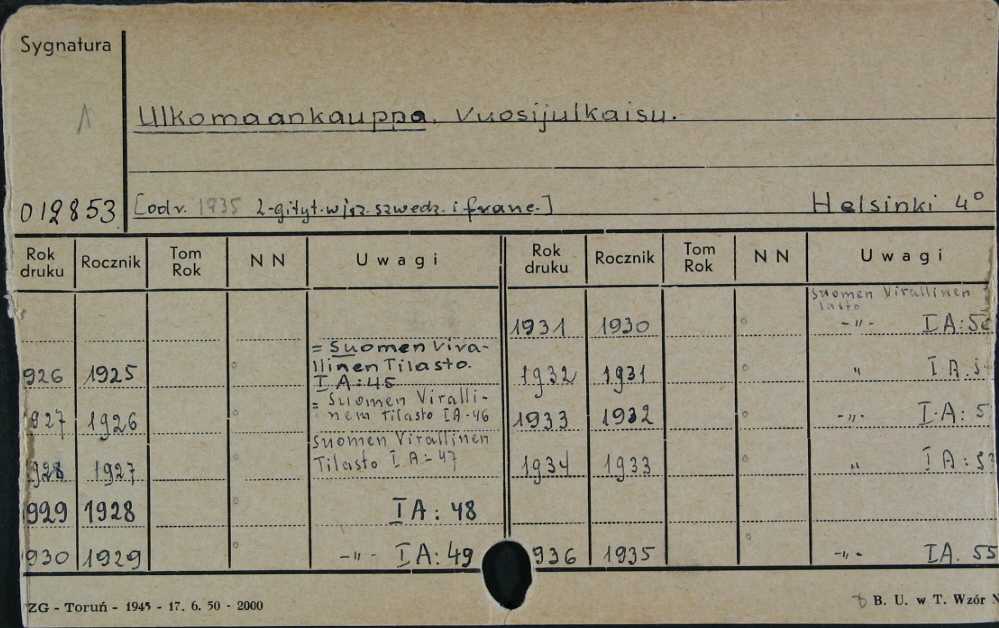 Sygnatura
Ulkomaankauppa. Vuosijulkaisu.
012853 [od r. 1935 2-gi tyt. w jęz. szwedz. i franc.] Helsinki 4°
Rok druku Rocznik Tom Rok N N Uwagi Rok druku Rocznik Tom Rok N N Uwagi
Suomen Virallinen
1931 1930 -"- I A:
= Suomen Vira-
llinen Tilasto.
926 1925 I A: 45 1932 1931 " I A:
= Suomen Viralli-
927 1926 nem Tilasto IA-46 1933 1932 -"- I A:
Suomen Virallinen
928 1927 Tilasto I A-47 1934 1933 " I A: 53
929 1928 I A: 48
930 1929 -"- I A: 49 936 1935 -"- IA. 55
ZG - Toruń - 1945 - 17. 6. 50 - 2000 B. U. w T. Wzór N